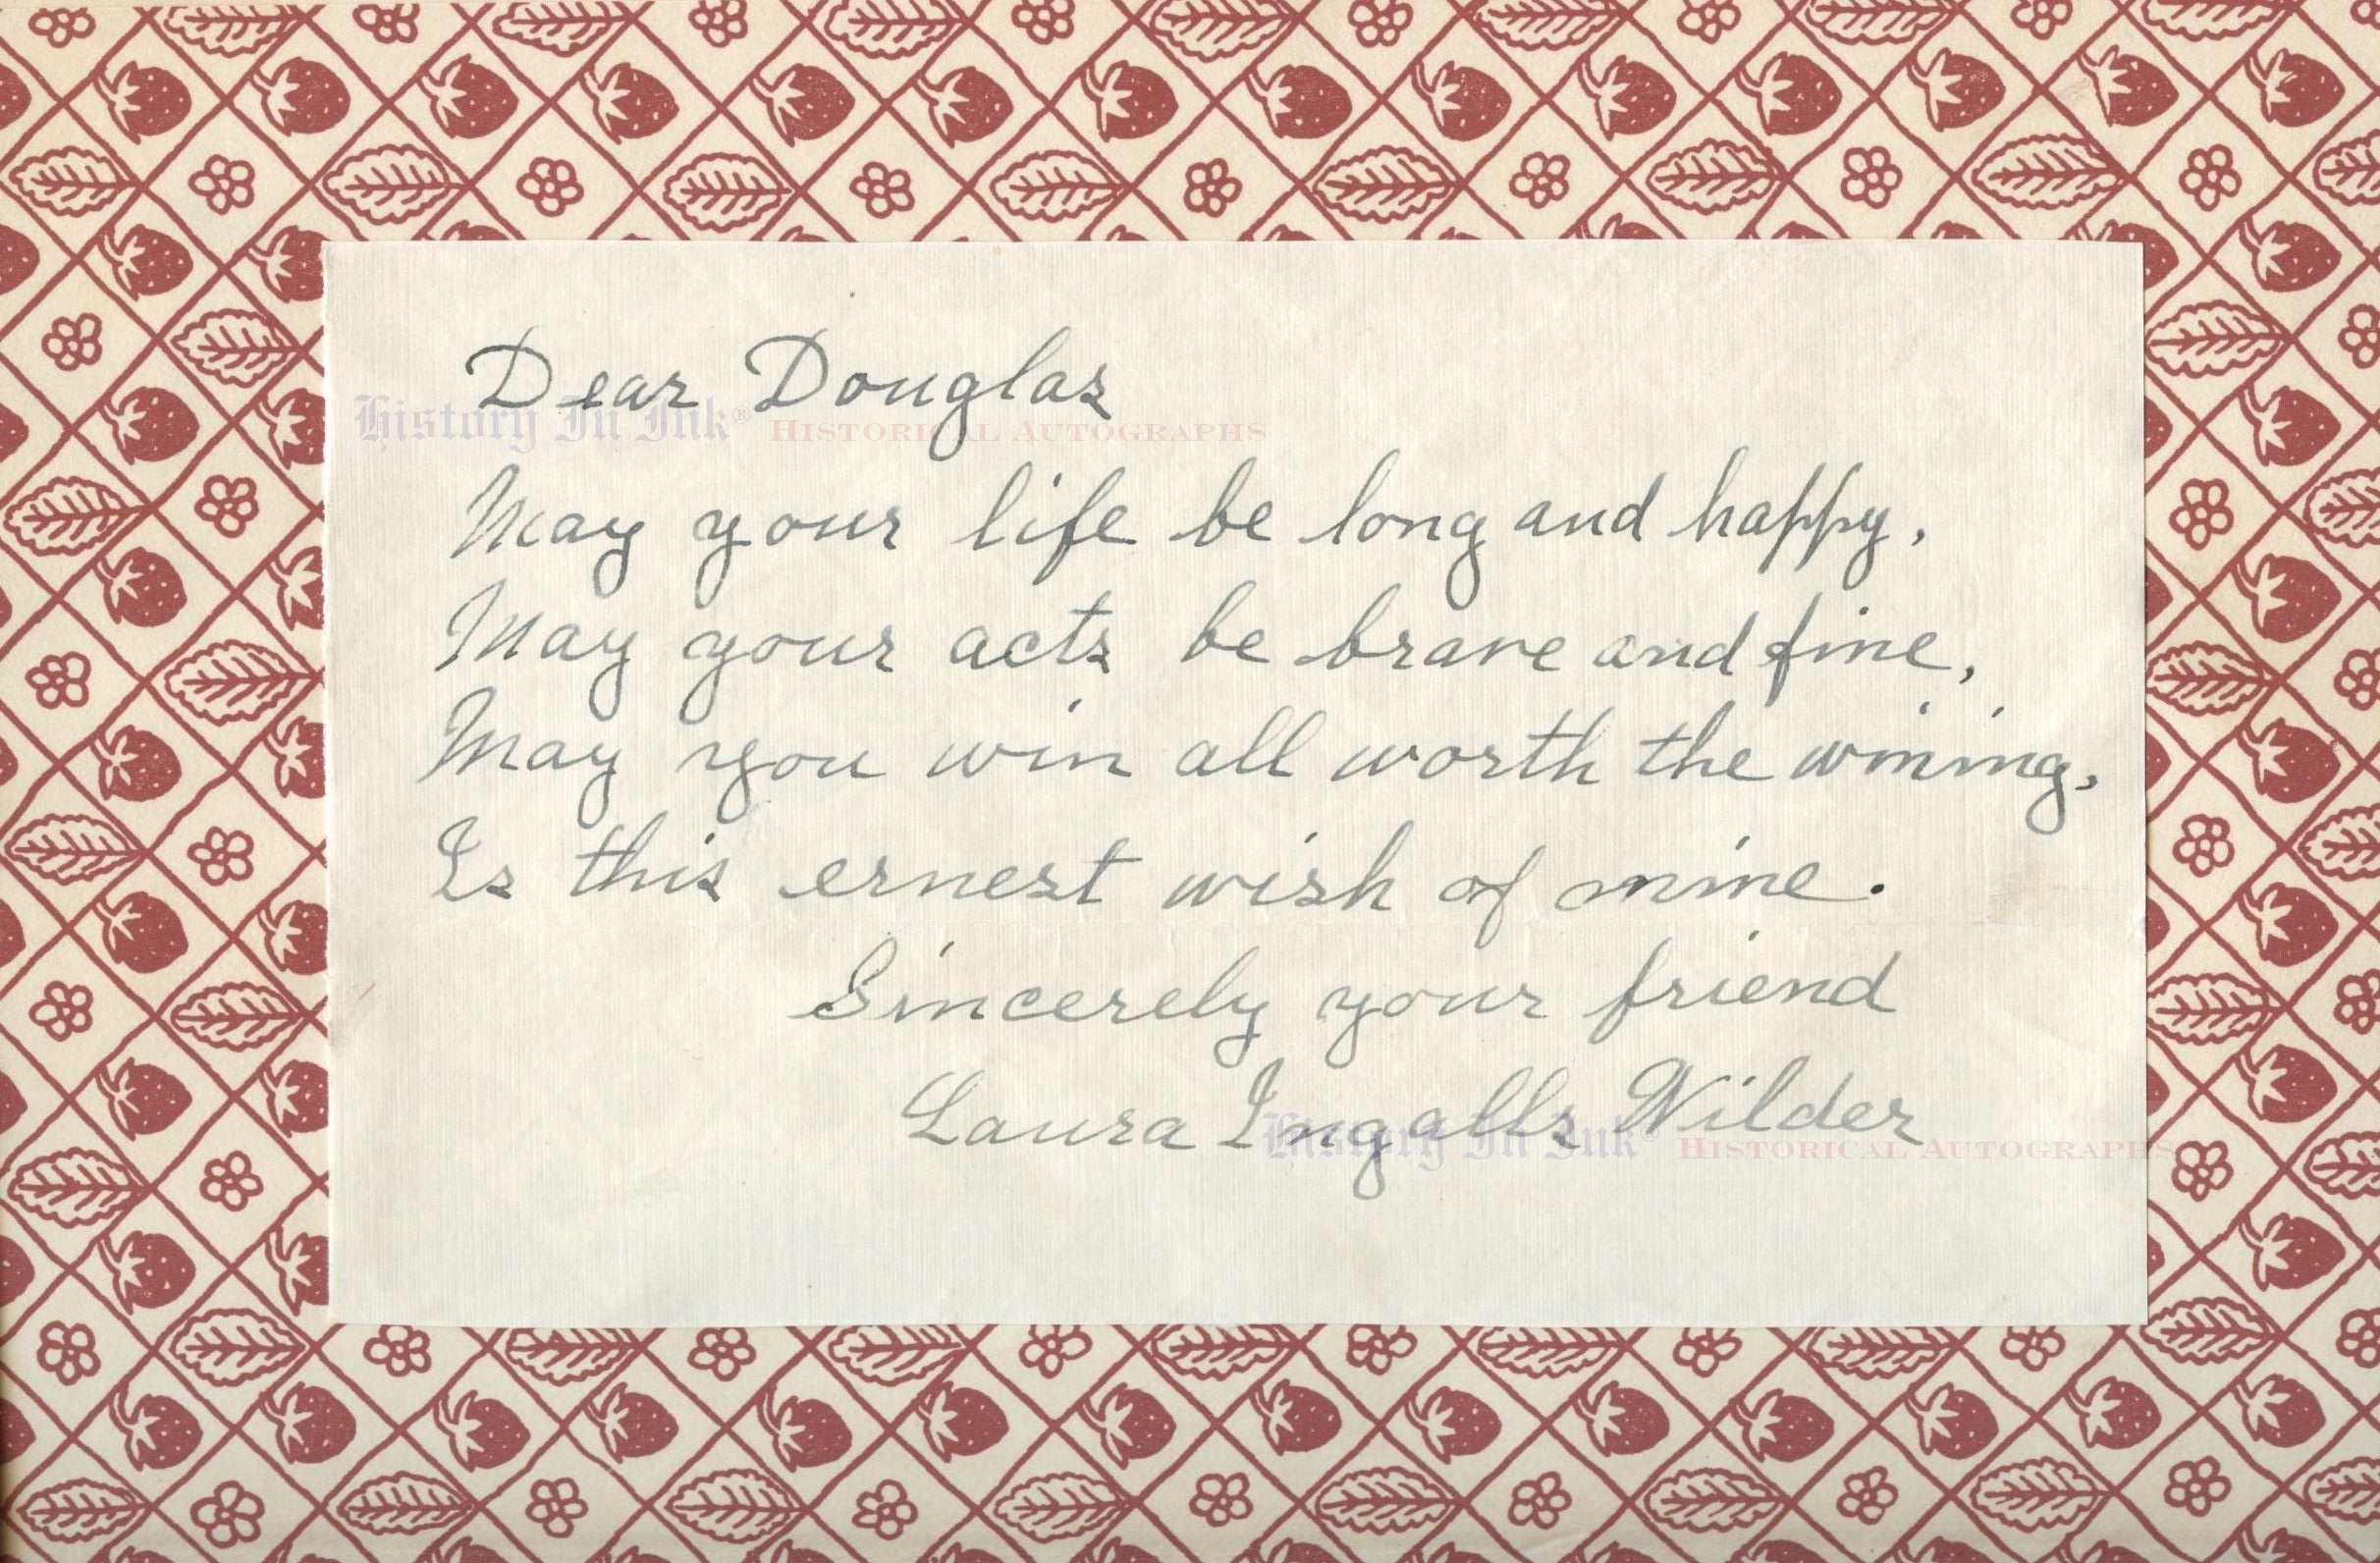 Dear Douglas
History In Ink® Historical Autographs
May your life be long and happy,
May your acts be brave and fine,
May you win all worth the wining,
Is this ernest wish of mine.
Sincerely your friend
Laura Ingalls Wilder
History In Ink® Historical Autographs